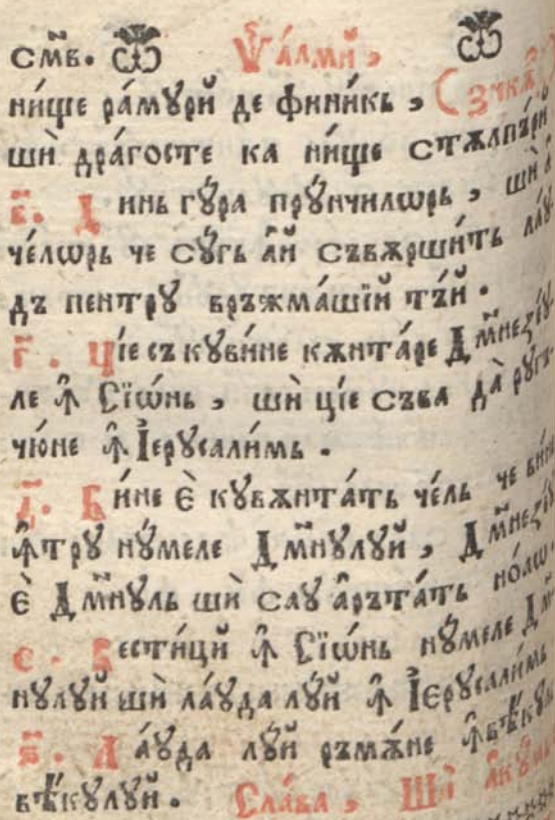 см҃в. Ѱалмй,
ни́ще ра́мꙋрй де фини́кь, (зикѫ
шѝ дра́госте ка ни́ще стѫлпъ́рй
в҃. Динь гꙋ́ра прꙋ́нчилѡрь, шѝ
че́лѡрь че сꙋ́гь а́й съвѫрши́ть ла́ꙋ-
дъ пентрꙋ врѫжма́шїй тъ́й.
г҃. Ці́е съ кꙋви́не кѫнта́ре Дм҃незе́ꙋ-
ле ꙟ҆ Сїѡ́нь, шѝ ці́е съва да̀ рꙋгъ-
чю́не ꙟ҆ І҆ерꙋсали́мь.
д҃. Би́не є҆ кꙋвѫнта́ть че́ль че ви́не
ꙟ҆трꙋ нꙋ́меле Дм҃нꙋлꙋй, Дм҃незе́ꙋ
є҆ Дм҃нꙋль шѝ саꙋ а҆ръта́ть но́лѡ.
е҃. Вести́цй ꙟ҆ Сїѡ́нь нꙋ́меле Дм҃-
нꙋлꙋй шѝ ла́ꙋда лꙋ́й ꙟ҆ І҆ерꙋсали́мь
ѕ҃. Ла́ꙋда лꙋ́й ръмѫ́не ꙟ҆вѣ́кꙋл
вѣ́кꙋлꙋй. Сла́ва, Шѝ а҆кꙋ́мь